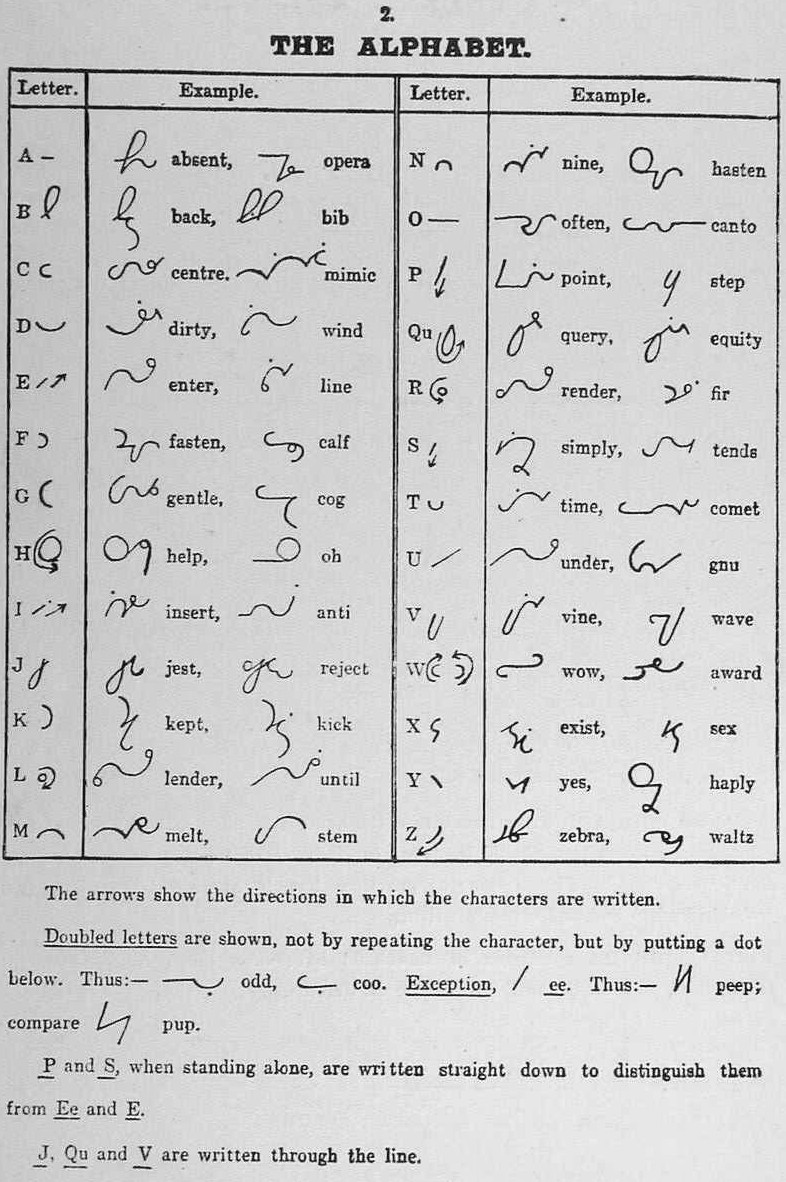 2.
THE ALPHABET.
Letter. Example. Letter. Example.
A absent, opera N nine, hasten
B back, bib O often, canto
C centre. mimic P point, step
D dirty, wind Qu query, equity
E enter, line R render, fir
F fasten, calf S simply, tends
G gentle, cog T time, comet
H help, oh U under, gnu
I insert, anti V vine, wave
J jest, reject W wow, award
K kept, kick X exist, sex
L lender, until Y yes, haply
M melt, stem Z zebra, waltz
The arrows show the directions in which the characters are written.
Doubled letters are shown, not by repeating the character, but by putting a dot
below. Thus:— odd, coo. Exception, ee. Thus:— peep;
compare pup.
P and S, when standing alone, are written straight down to distinguish them
from Ee and E.
J, Qu and V are written through the line.